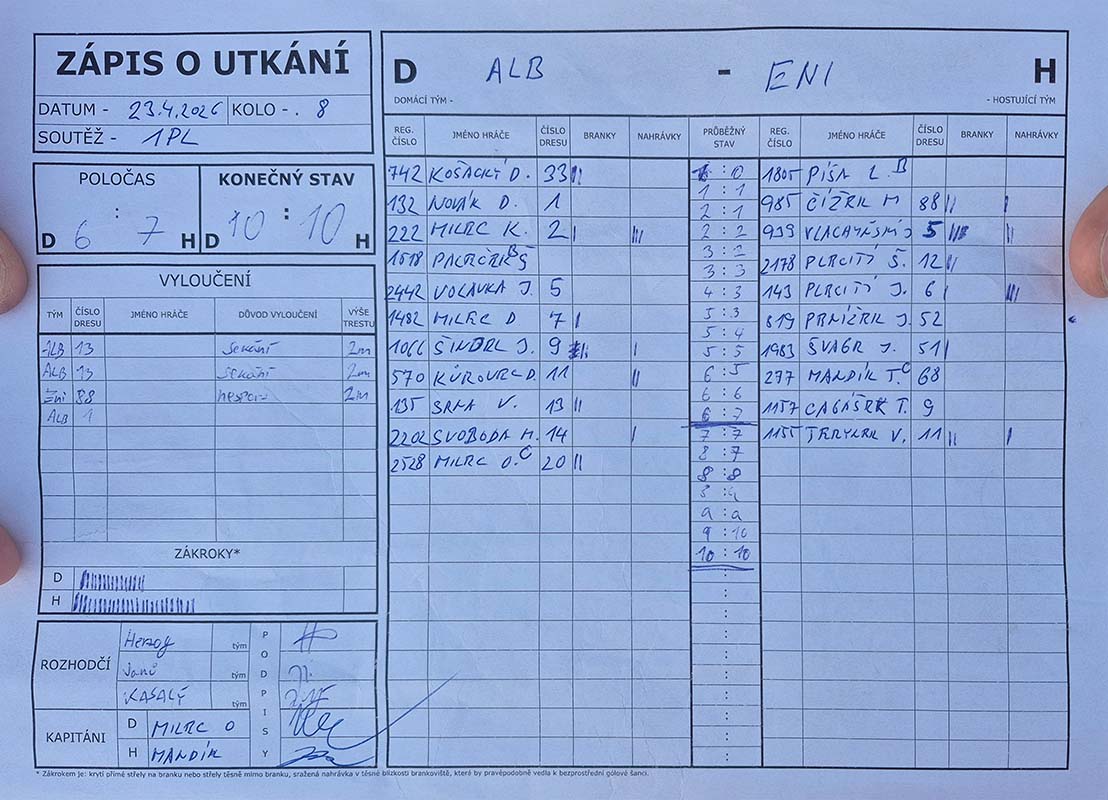 ZÁPIS O UTKÁNÍ
DATUM - 23.4.2026 KOLO - . 8
SOUTĚŽ - 1PL
POLOČAS KONEČNÝ STAV
D 6 : 7 H D 10 : 10 H
VYLOUČENÍ
TÝM ČÍSLO DRESU JMÉNO HRÁČE DŮVOD VYLOUČENÍ VÝŠE TRESTU
ALB 13 sekání 2m
ALB 13 sekání 2m
Eni 88 2m
ALB 1
ZÁKROKY*
D
H
ROZHODČÍ
Herzog tým
Janů tým
KASALÝ tým
PODPISY
KAPITÁNI
D MILEC O
H MANDÍK
D ALB - ENI H
DOMÁCÍ TÝM - - HOSTUJÍCÍ TÝM
REG. ČÍSLO JMÉNO HRÁČE ČÍSLO DRESU BRANKY NAHRÁVKY PRŮBĚŽNÝ STAV REG. ČÍSLO JMÉNO HRÁČE ČÍSLO DRESU BRANKY NAHRÁVKY
742 KOŠACKÝ D. 33 II : 0 1805 PÍŠA L. B
132 NOVÁK D. 1 1 : 1 985 ČÍŽEK M 88 II I
222 MILEC K. 2 I III 2 : 1 939 5 II
1518 B Š 2 : 2 2178 PLECITÝ Š. 12 II
2442 VOLAVKA J. 5 3 : 2 143 PLECITÝ J. 6 I III
1482 MILEC D 7 I 3 : 3 819 J. 52
1066 ŠINDEL J. 9 I 4 : 3 1983 ŠVAGR J. 51 I
570 KŮROVEC D. 11 II 5 : 3 277 MANDÍK T. C 68
135 SRNA V. 13 II 5 : 4 1157 T. 9
2202 SVOBODA M. 14 I 5 : 5 1155 V. 11 II I
2528 MILEC O. C 20 II 6 : 5
6 : 6
6 : 7
7 : 7
8 : 7
8 : 8
9 : 10
10 : 10
* Zákrokem je: krytí přímé střely na branku nebo střely těsně mimo branku, sražená nahrávka v těsné blízkosti brankoviště, která by pravěpodobně vedla k bezprostřední gólové šanci.